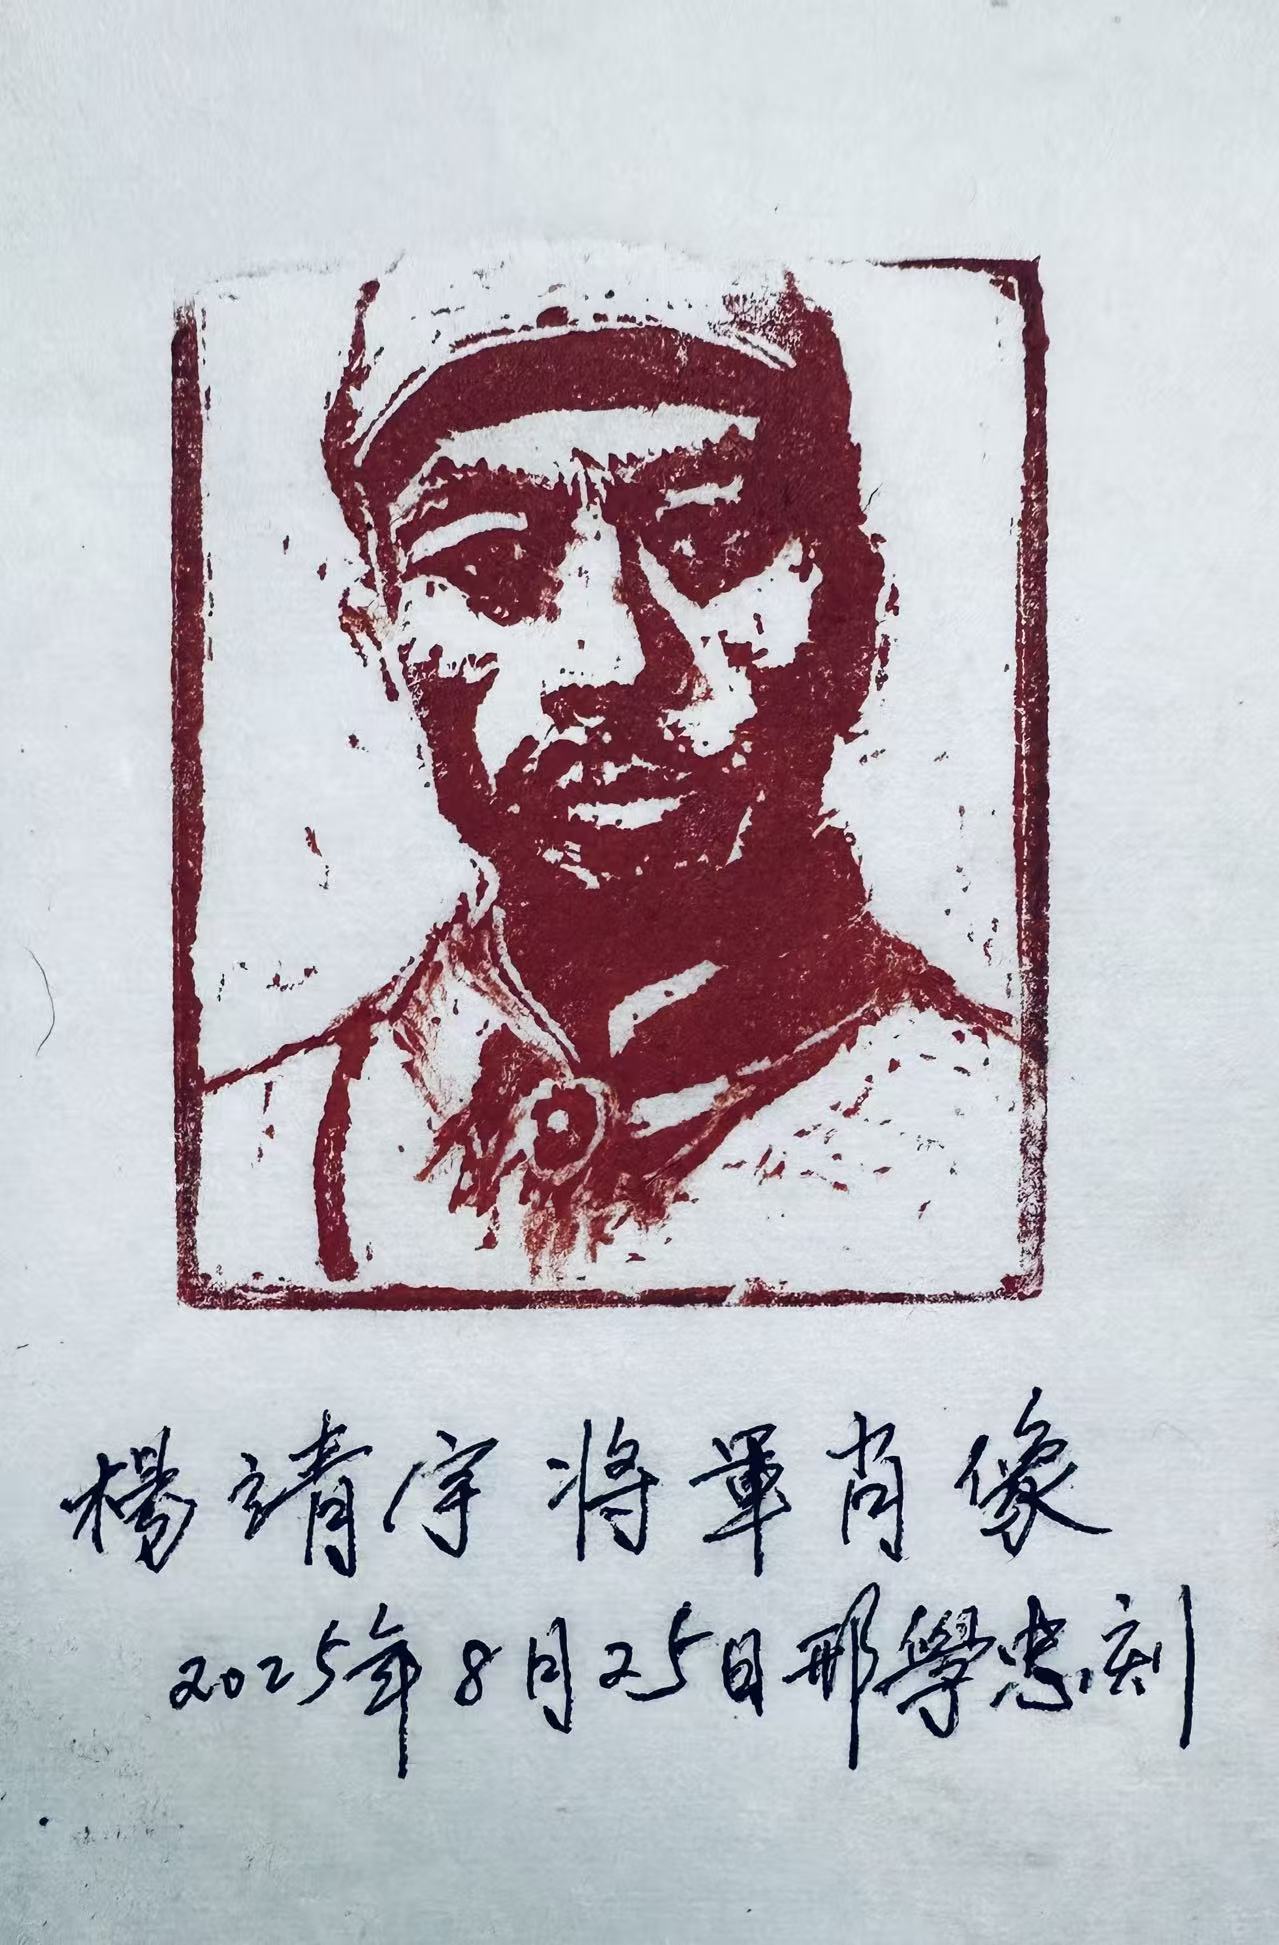 楊靖宇将軍肖像
2025年8月25日邢學忠刻